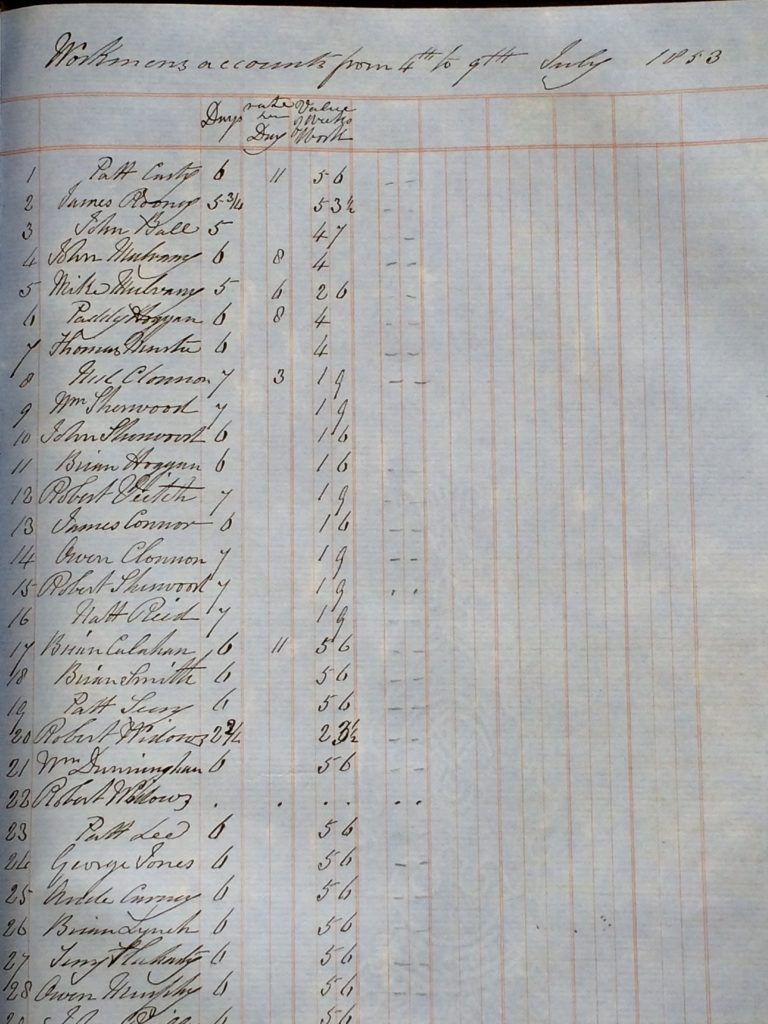 Workmens accounts from 4th to 9th July 1853
Days rate per Day Value of Weeks Work
1 Patt Casty 6 11 5 6 - -
2 James Rooney 5 3/4 5 3 1/2 - -
3 John Ball 5 4 7 - -
4 John Mulvany 6 8 4 - -
5 Mike Mulvany 5 6 2 6 - -
6 Paddy Hoggan 6 8 4 - -
7 Thomas 6 4 - -
8 Clonnon 7 3 1 9 - -
9 Wm Sherwood 7 1 9
10 John Sherwood 6 1 6
11 Brian Hoggan 6 1 6 - -
12 Robert Veitch 7 1 9 - -
13 James Connor 6 1 6 - -
14 Owen Clonnon 7 1 9 - -
15 Robert Sherwood 7 1 9 . .
16 Natt Reid 7 1 9 - -
17 Brian Calahan 6 11 5 6 - -
18 Brian Smith 6 5 6 - -
19 Patt 6 5 6 - -
20 Robert Widows 2 2/4 2 3 1/2 - -
21 Wm Dunningham 6 5 6 - -
22 Robert Widows . . . . . .
23 Patt Lee 6 5 6
24 George Jones 6 5 6 - -
25 Carney 6 5 6 - -
26 Brian Lynch 6 5 6 - -
27 Terry Flaharty 6 5 6 - -
28 Owen Murphy 6 5 6 - -